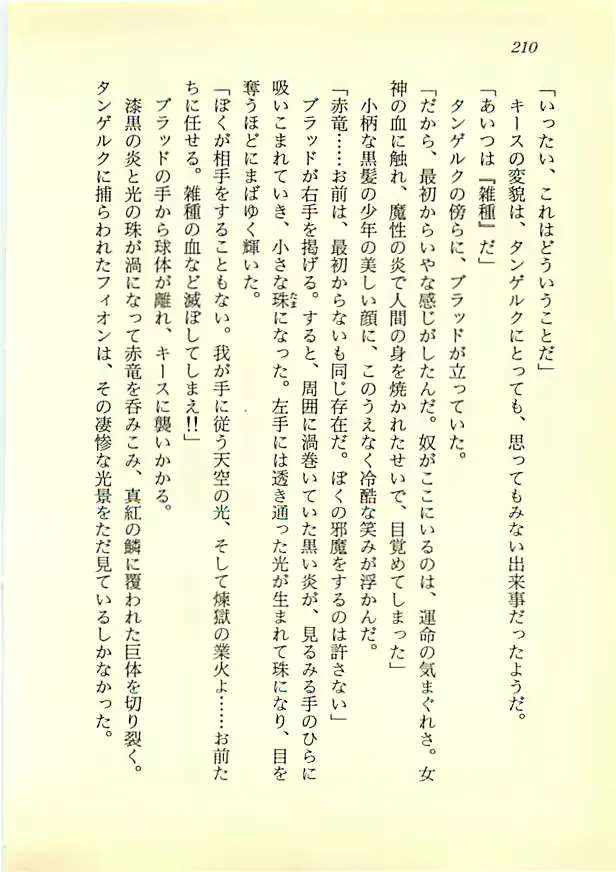 210
「いったい、これはどういうことだ」
キースの変貌は、タンゲルクにとっても、思ってもみない出来事だったようだ。
「あいつは『雑種』だ」
タンゲルクの傍らに、ブラッドが立っていた。
「だから、最初からいやな感じがしたんだ。奴がここにいるのは、運命の気まぐれさ。女
神の血に触れ、魔性の炎で人間の身を焼かれたせいで、目覚めてしまった」
小柄な黒髪の少年の美しい顔に、このうえなく冷酷な笑みが浮かんだ。
「赤竜……お前は、最初からないも同じ存在だ。ぼくの邪魔をするのは許さない」
ブラッドが右手を掲げる。すると、周囲に渦巻いていた黒い炎が、見るみる手のひらに
吸いこまれていき、小さな珠たまになった。左手には透き通った光が生まれて珠になり、目を
奪うほどにまばゆく輝いた。
「ぼくが相手をすることもない。我が手に従う天空の光、そして煉獄の業火よ……お前た
ちに任せる。雑種の血など滅ぼしてしまえ!!」
ブラッドの手から球体が離れ、キースに襲いかかる。
漆黒の炎と光の珠が渦になって赤竜を呑みこみ、真紅の鱗に覆われた巨体を切り裂く。
タンゲルクに捕らわれたフィオンは、その凄惨な光景をただ見ているしかなかった。